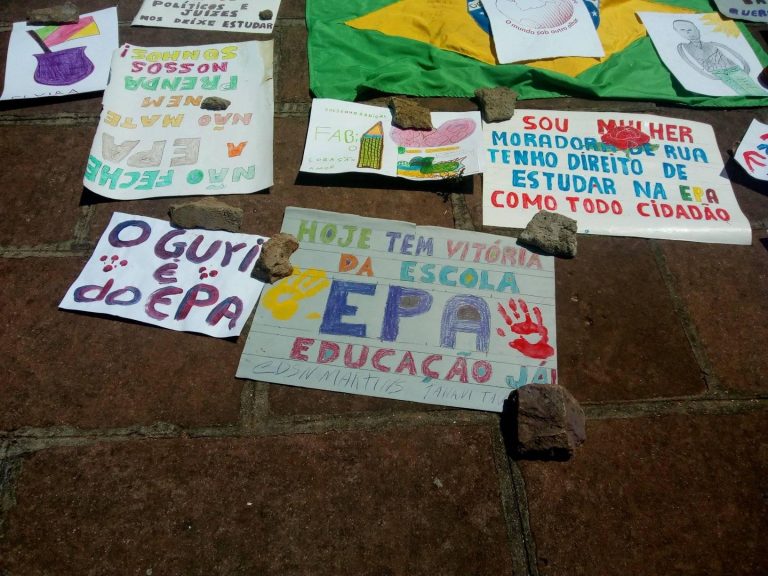 POLÍTICOS E
JUÍZES
NOS DEIXE ESTUDAR
O mundo sob outro olhar
ELVIRA
NÃO FECHE
A EPA
NÃO MATE
NEM
PRENDA
NOSSOS
SONHOS!
FABI
O
SOU MULHER
MORADORA DE RUA
TENHO DIREITO DE
ESTUDAR NA EPA
COMO TODO CIDADÃO
O GURYI
É
do EPA
HOJE TEM VITÓRIA
DA ESCOLA
EPA
EDUCAÇÃO JÁ!
MARTINS